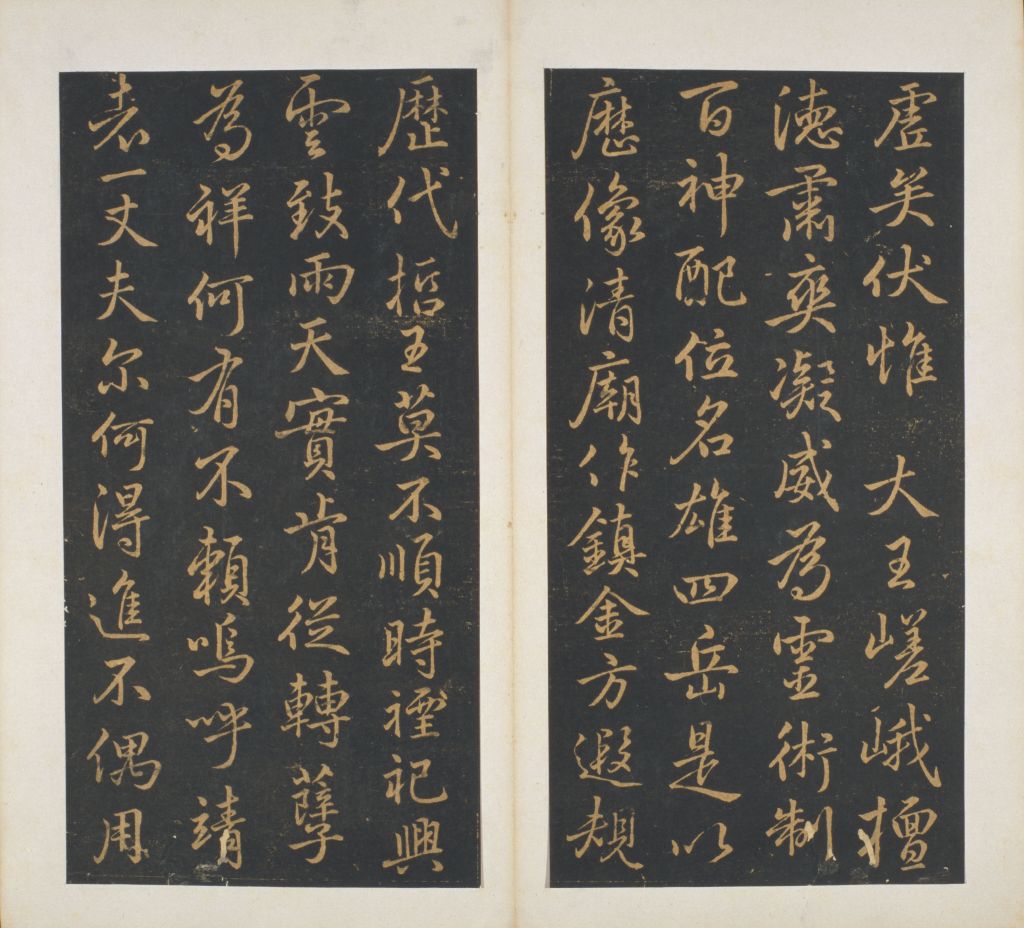 虗矣伏惟　大王嵯峨擅
德肅爽凝威為靈術制
百神配位名雄四岳是以
歷像清廟作鎮金方遐規
歷代哲王莫不順時禋祀興
雲致雨天實肯從轉孽
為祥何有不賴嗚呼靖
者一丈夫尒何得進不偶用